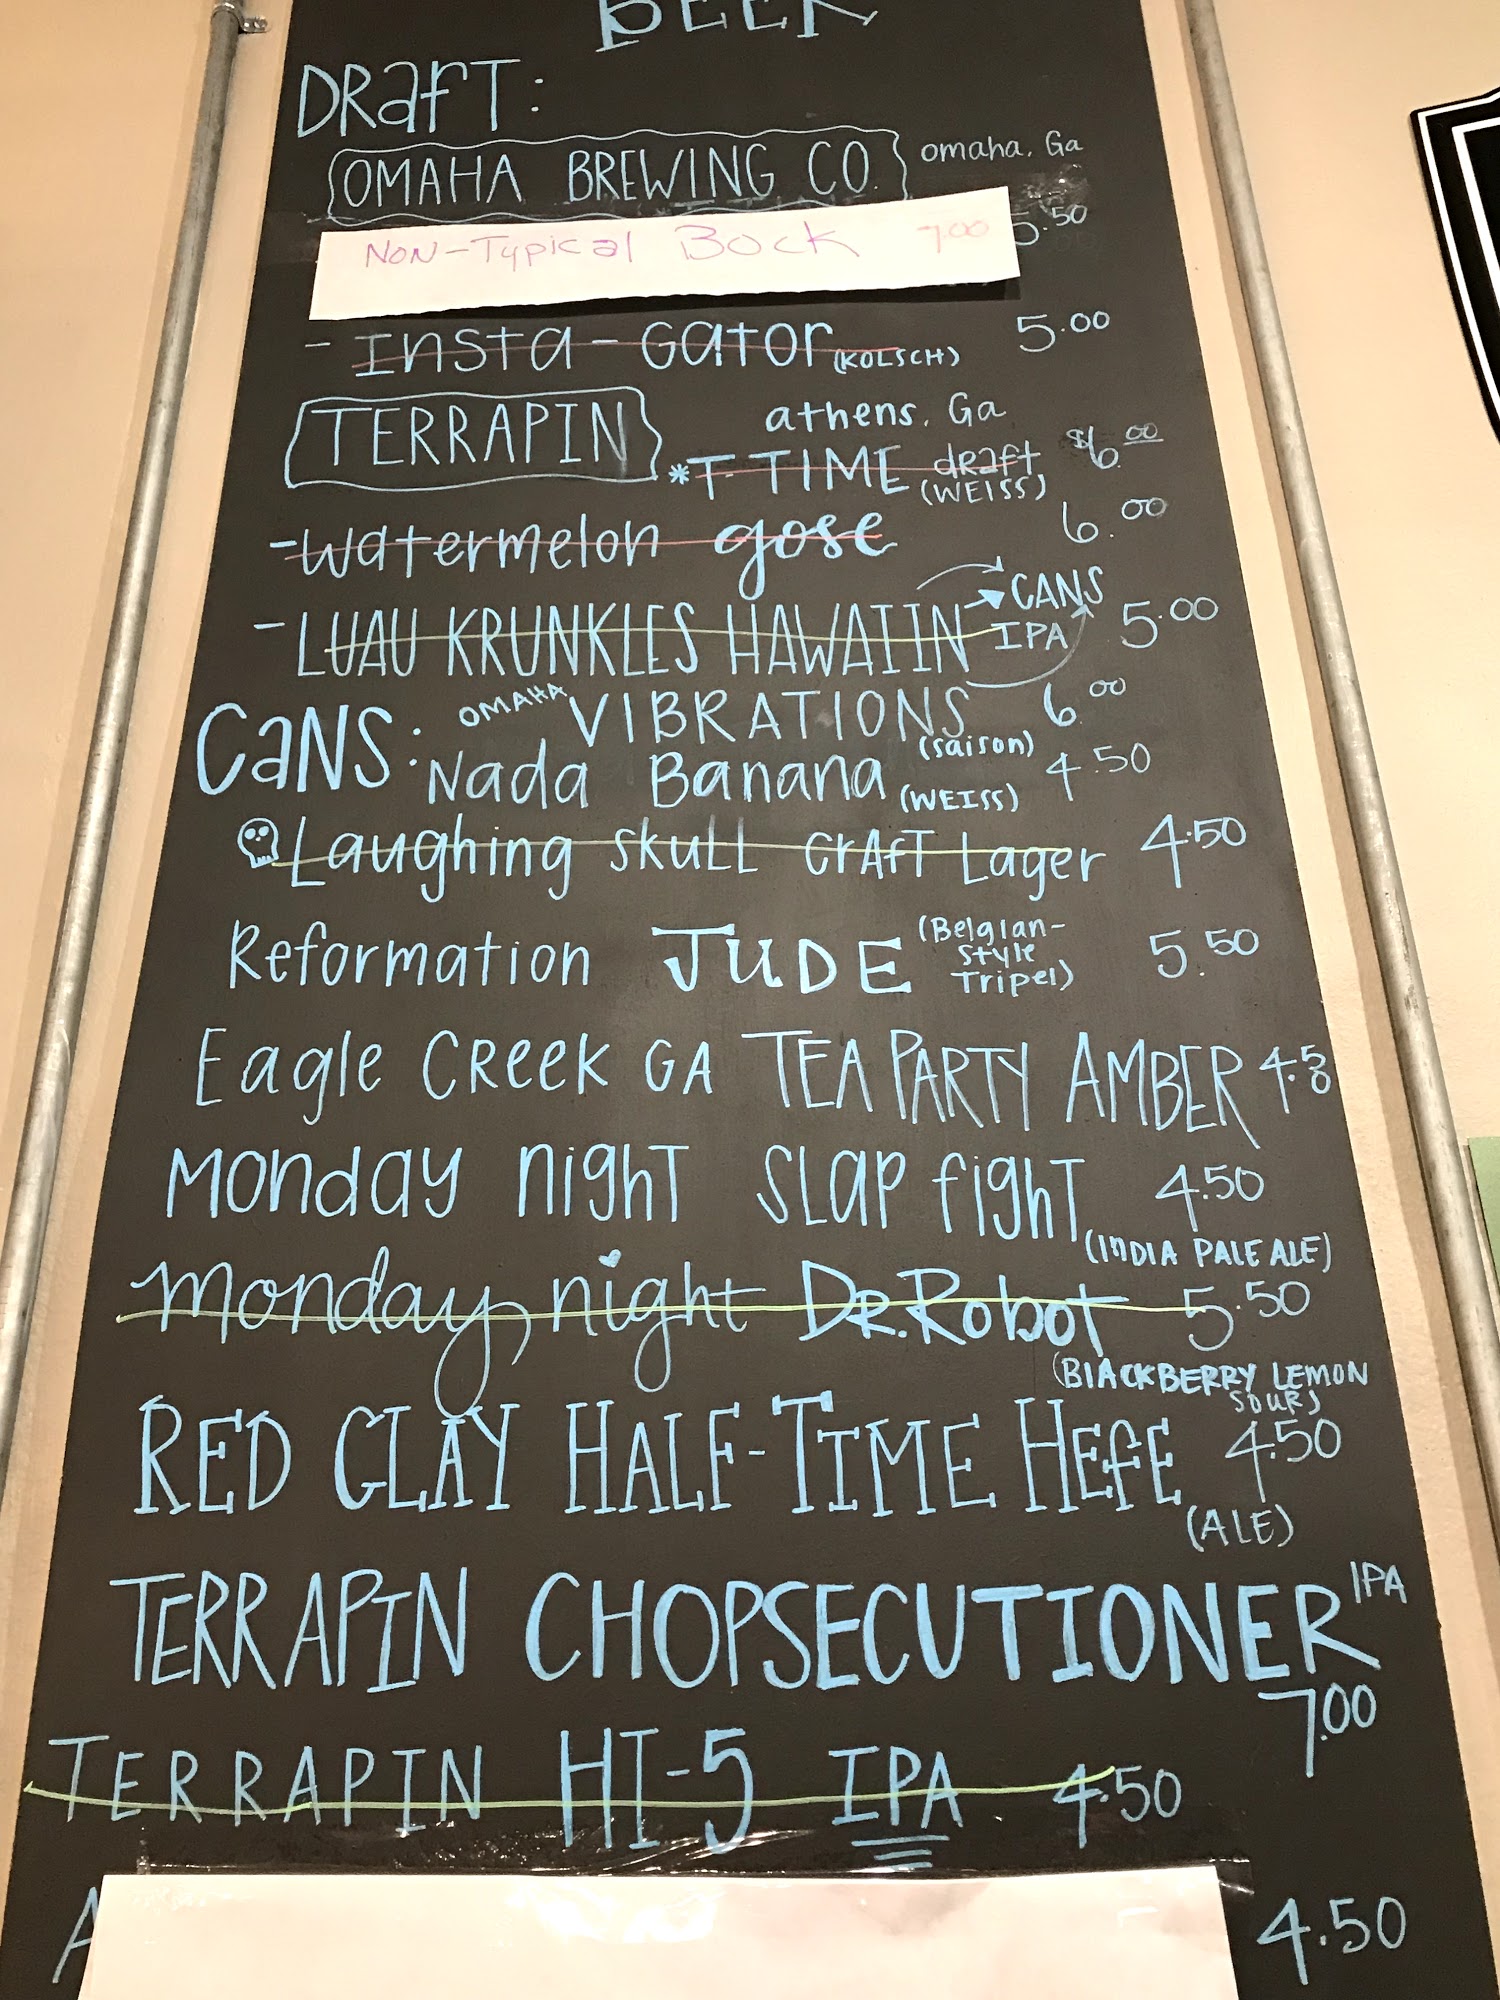 BEER
DRafT:
OMAHA BREWING CO. omaha, Ga
Non-Typical Bock 7.00 5.50
- Insta-Gator (KOLSCH) 5.00
TERRAPIN athens, Ga
*T-TIME draft (WEISS) $6.00
-watermelon gose 6.00
- LUAU KRUNKLES HAWAIIN IPA CANS 5.00
CaNS: OMAHA VIBRATIONS (saison) 6.00
Nada Banana (WEISS) 4.50
Laughing skull craft Lager 4.50
Reformation JUDE (Belgian-style Tripel) 5.50
Eagle Creek GA TEA PARTY AMBER 4.50
Monday night SLAP fight 4.50
(INDIA PALE ALE)
monday night DR. Robot 5.50
(BLACKBERRY LEMON SOUR)
RED CLAY HALF-TIME HEFE 4.50
(ALE)
TERRAPIN CHOPSECUTIONER IPA
7.00
TERRAPIN HI-5 IPA 4.50
4.50